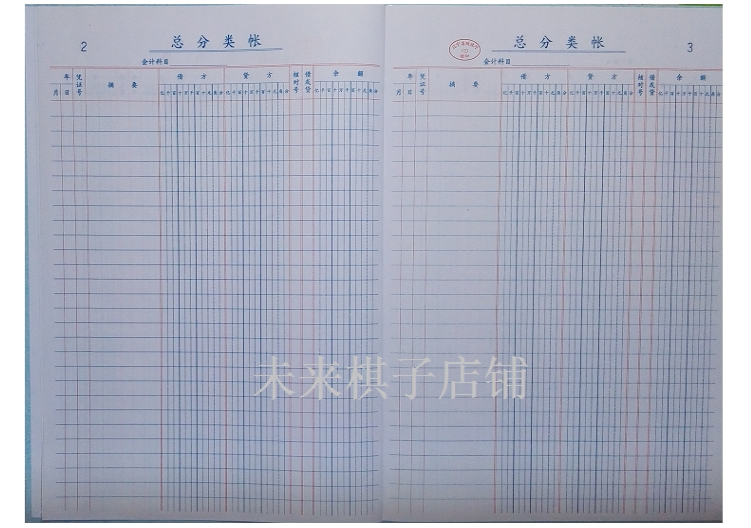 2
总分类帐
会计科目
年 凭证号 摘要 借方 贷方 核对号 借或贷 余额
月 日 亿千百十万千百十元角分 亿千百十万千百十元角分 亿千百十万千百十元角分
3
总分类帐
会计科目
年 凭证号 摘要 借方 贷方 核对号 借或贷 余额
月 日 亿千百十万千百十元角分 亿千百十万千百十元角分 亿千百十万千百十元角分
未来棋子店铺